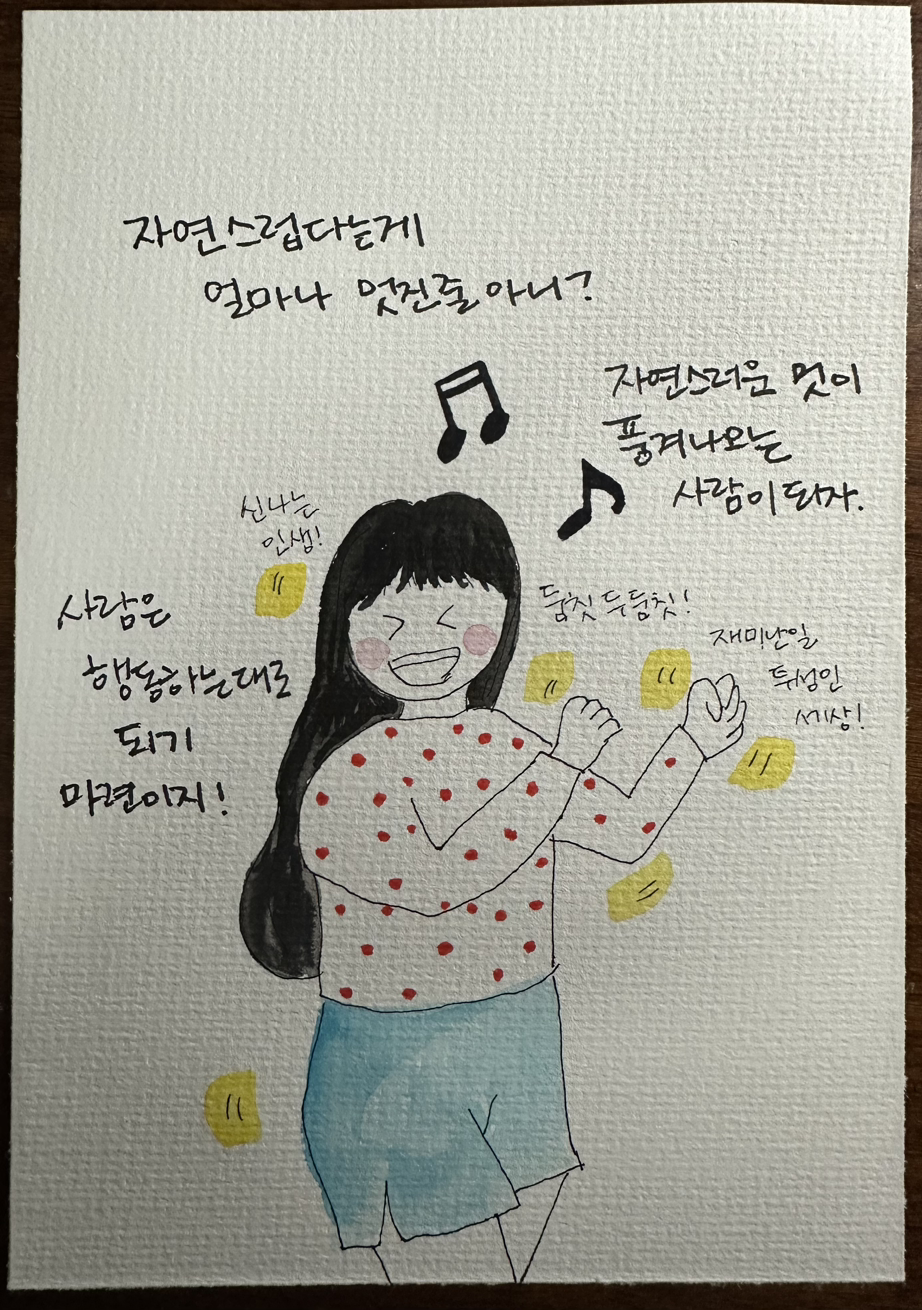 자연스럽다는게
얼마나 멋진줄 아니?
자연스러운 멋이
풍겨나오는
사람이 되자.
신나는
인생!
사람은
행동하는대로
되기
마련이지!
둠칫 두둠칫!
재미난일
투성인
세상!